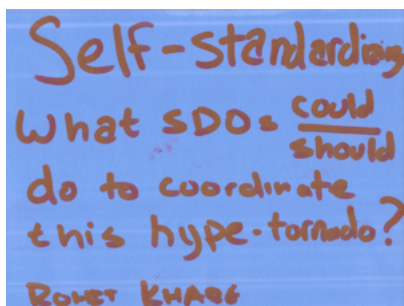 Self-standardizing
What SDOs could
should
do to coordinate
this hype-tornado?
ROHIT KHARE